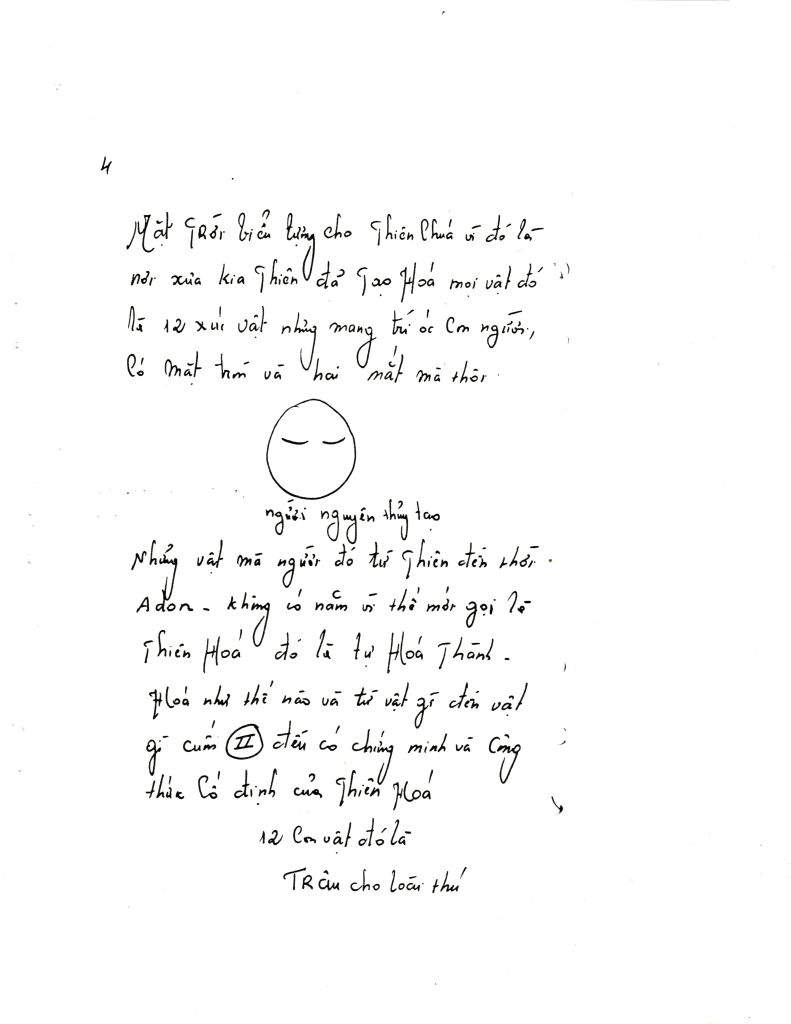 4
Mặt Trời biểu tựng cho Thiên Chuá vì đó là
nơi xưa kia Thiên đả Tạo Hoá mọi vật đó
là 12 xúc vật nhưng mang trí óc con người,
Có mặt trời và hai mắt mà thôi.
người nguyên thủy tạo
Những vật mà người đó từ Thiên đến thời
Adon - không có nằm vì thế mới gọi là
Thiên Hoá đó là tự Hoá Thành -
Hoá như thế nào và từ vật gì đến vật
gì cuốn II đều có chứng minh và Công
thức Cố định của Thiên Hoá
12 Con vật đó là
TRâu cho loài thú